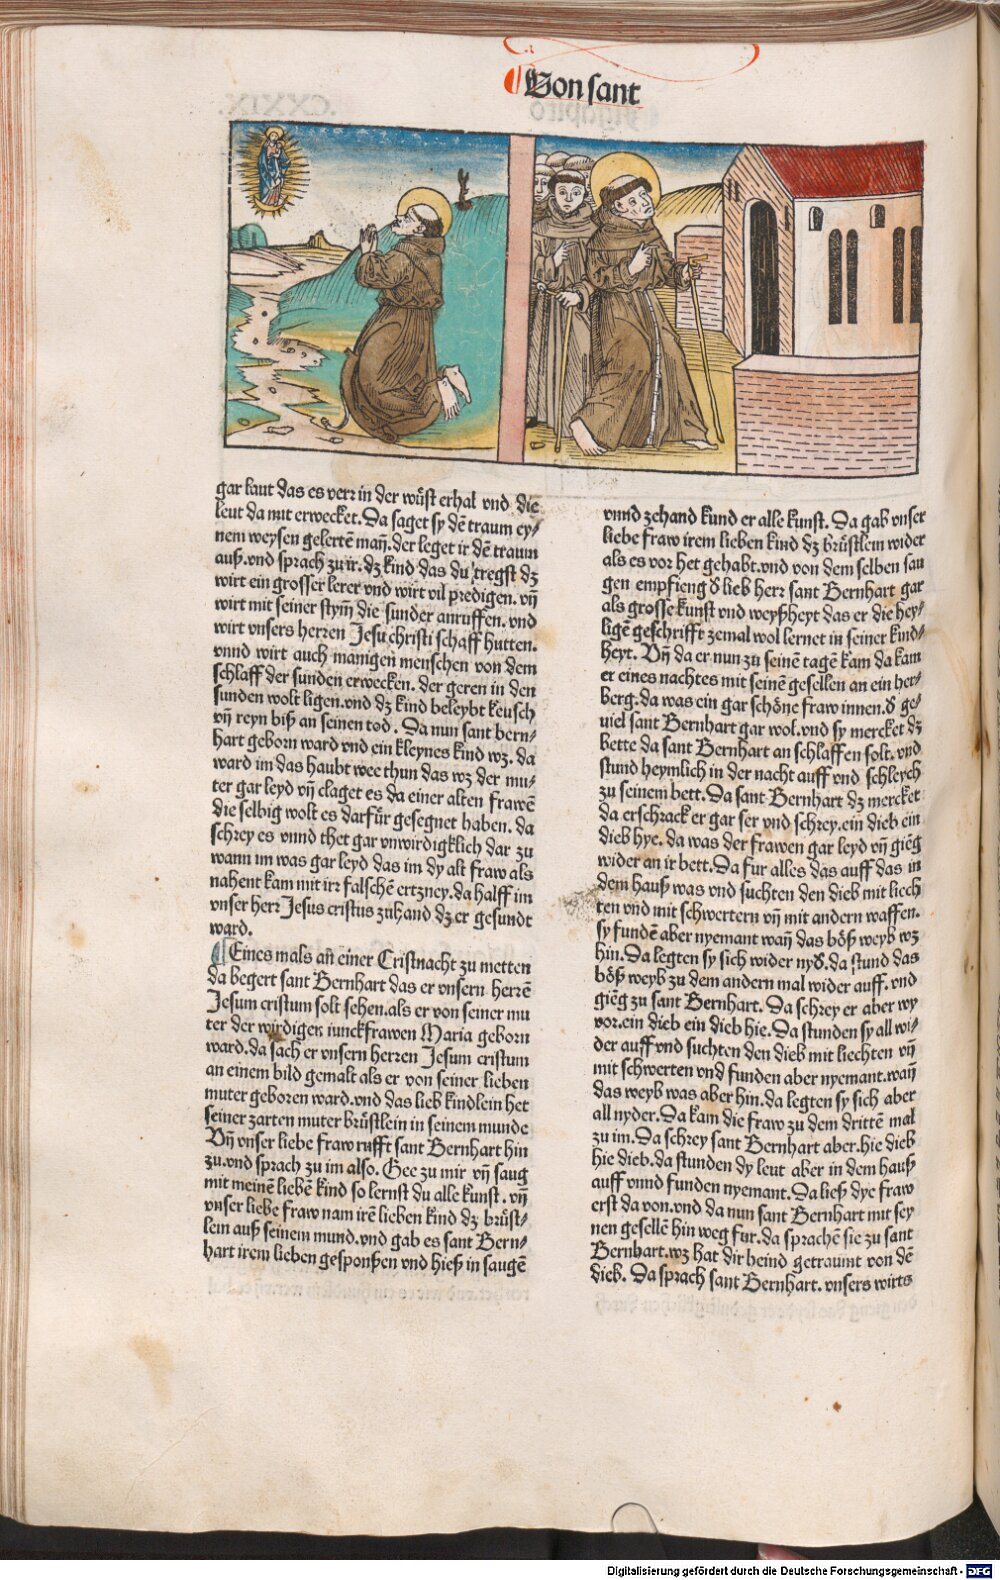 Von sant
gar laut das es verr in der wüst erhal vnd die
leut da mit erwecket. Da saget sy dē traum ey⸗
nem weysen gelertē mañ. der leget ir dē traum
auß. vnd sprach zu ir. dz kind das du tregst dz
wirt ein grosser lerer vnd wirt vil predigen. vñ
wirt mit seiner stym̃ die sunder anruffen. vnd
wirt vnsers herren Jesu christi schaff hutten.
vnnd wirt auch manigen menschen von dem
schlaff der sunden erwecken. der geren in den
sunden wolt ligen. vnd dz kind beleybt keusch
vñ reyn biß an seinen tod. Da nun sant bern⸗
hart geborn ward vnd ein kleynes kind wz. da
ward im das haubt wee thun das wz der mu⸗
ter gar leyd vñ claget es da einer alten frawē
die selbig wolt es darfür gesegnet haben. da
schrey es vnnd thet gar vnwirdigklich dar zu
wann im was gar leyd das im dy alt fraw als
nahent kam mit irr falschē ertzney. da halff im
vnser herr Jesus cristus zuhand dz er gesundt
ward.
¶ Eines mals an̄ einer Cristnacht zu metten
da begert sant Bernhart das er vnsern herrē
Jesum cristum solt sehen. als er von seiner mu
ter der wirdigen iunckfrawen Maria geborn
ward. da sach er vnsern herren Jesum cristum
an einem bild gemalt als er von seiner lieben
muter geboren ward. vnd das lieb kindlein het
seiner zarten muter brüstlein in seinem munde
Vñ vnser liebe fraw rufft sant Bernhart hin
zu. vnd sprach zu im also. Gee zu mir vñ saug
mit meinē liebē kind so lernst du alle kunst. vñ
vnser liebe fraw nam irē lieben kind dz brüst⸗
lein auß seinem mund. vnd gab es sant Bern⸗
hart irem lieben gesponßen vnd hieß in saugē
vnnd zehand kund er alle kunst. Da gab vnser
liebe fraw irem lieben kind dz brüstlein wider
als es vor het gehabt. vnd von dem selben sau
gen empfieng d lieb herr sant Bernhart gar
als grosse kunst vnd weyßheyt das er die hey⸗
ligē geschrifft zemal wol lernet in seiner kind⸗
heyt. Vñ da er nun zu seinē tagē kam da kam
er eines nachtes mit seinē gesellen an ein her⸗
berg. da was ein gar schöne fraw innen. d ge⸗
uiel sant Bernhart gar wol. vnd sy mercket dz
bette da sant Bernhart an schlaffen solt. vnd
stund heymlich in der nacht auff vnd schleych
zu seinem bett. Da sant Bernhart dz mercket
da erschrack er gar ser vnd schrey. ein dieb ein
dieb hye. da was der frawen gar leyd vñ giēg
wider an ir bett. Da fur alles das auff das in
dem hauß was vnd suchten den dieb mit liech
ten vnd mit schwertern vñ mit andern waffen.
sy fundē aber nyemant wañ das böß weyb wz
hin. Da legten sy sich wider nyd. da stund das
böß weyb zu dem andern mal wider auff. vnd
giēg zu sant Bernhart. Da schrey er aber wy
vor. ein dieb ein dieb hie. Da stunden sy all wi⸗
der auff vnd suchten den dieb mit liechten vñ
mit schwerten vnd funden aber nyemant. wañ
das weyb was aber hin. da legten sy sich aber
all nyder. Da kam die fraw zu dem drittē mal
zu im. Da schrey sant Bernhart aber. hie dieb
hie dieb. da stunden dy leut aber in dem hauß
auff vnnd funden nyemant. Da ließ dye fraw
erst da von. vnd da nun sant Bernhart mit sey
nen gesellē hin weg fur. da sprachē sie zu sant
Bernhart. wz hat dir heind getraumt von dē
dieb. Da sprach sant Bernhart. vnsers wirts
Digitalisierung gefördert durch die Deutsche Forschungsgemeinschaft - DFG